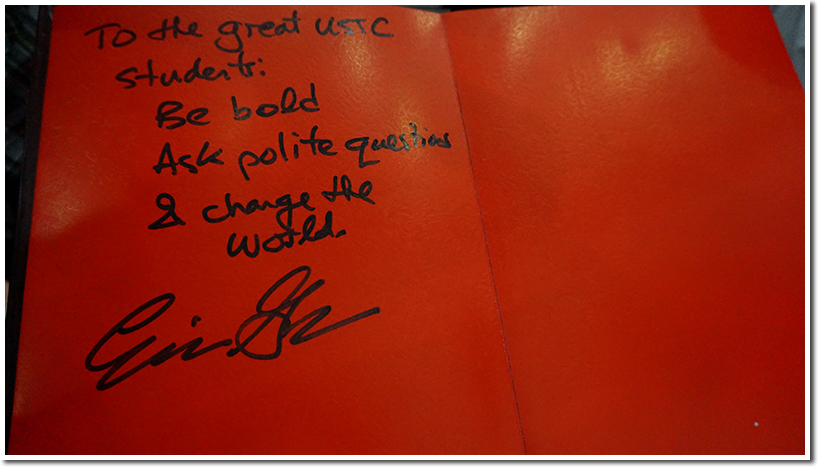 To the great USTC
students:
Be bold
Ask polite questions
& change the
World.